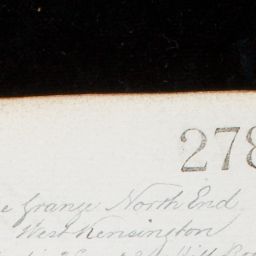 278
e Grange North End
West Kensington